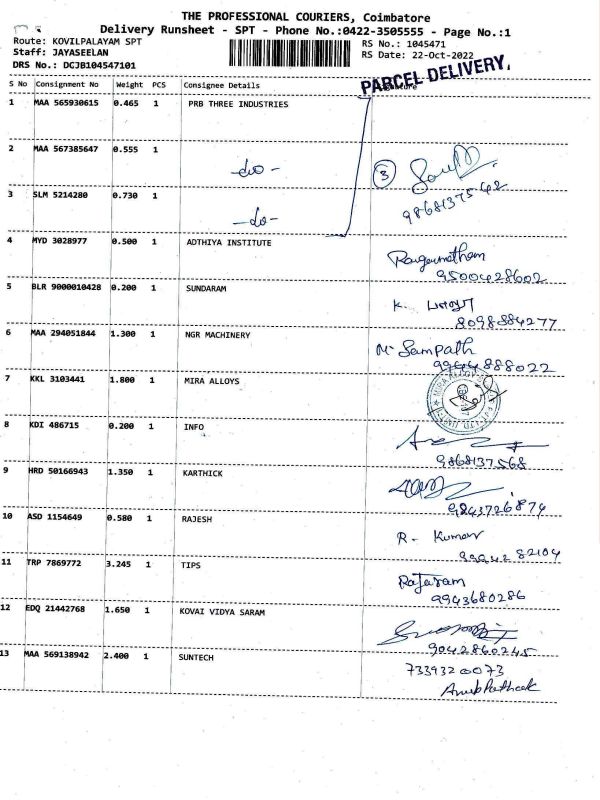 THE PROFESSIONAL COURIERS, Coimbatore
Delivery Runsheet - SPT - Phone No.:0422-3505555 - Page No.:1
Route: KOVILPALAYAM SPT
RS No.: 1045471
Staff: JAYASEELAN
RS Date: 22-Oct-2022
DRS No.: DCJB104547101
PARCEL DELIVERY,
S No Consignment No Weight PCS Consignee Details Signature
1 MAA 565930615 0.465 1 PRB THREE INDUSTRIES
2 MAA 567385647 0.555 1
-do- 3
9868137542
3 SLM 5214280 0.730 1
-do-
4 MYD 3028977 0.500 1 ADTHIYA INSTITUTE
Rangunatham
9500428602
5 BLR 9000010428 0.200 1 SUNDARAM
K.
8098884277
6 MAA 294051844 1.300 1 NGR MACHINERY
M. Sampath
9944888022
7 KKL 3103441 1.800 1 MIRA ALLOYS
8 KDI 486715 0.200 1 INFO
9868137568
9 HRD 50166943 1.350 1 KARTHICK
9843726874
10 ASD 1154649 0.580 1 RAJESH
R- Kumar
99942 82104
11 TRP 7869772 3.245 1 TIPS
Rajaram
9943680286
12 EDQ 21442768 1.650 1 KOVAI VIDYA SARAM
9042860245
13 MAA 569138942 2.400 1 SUNTECH
7339320073